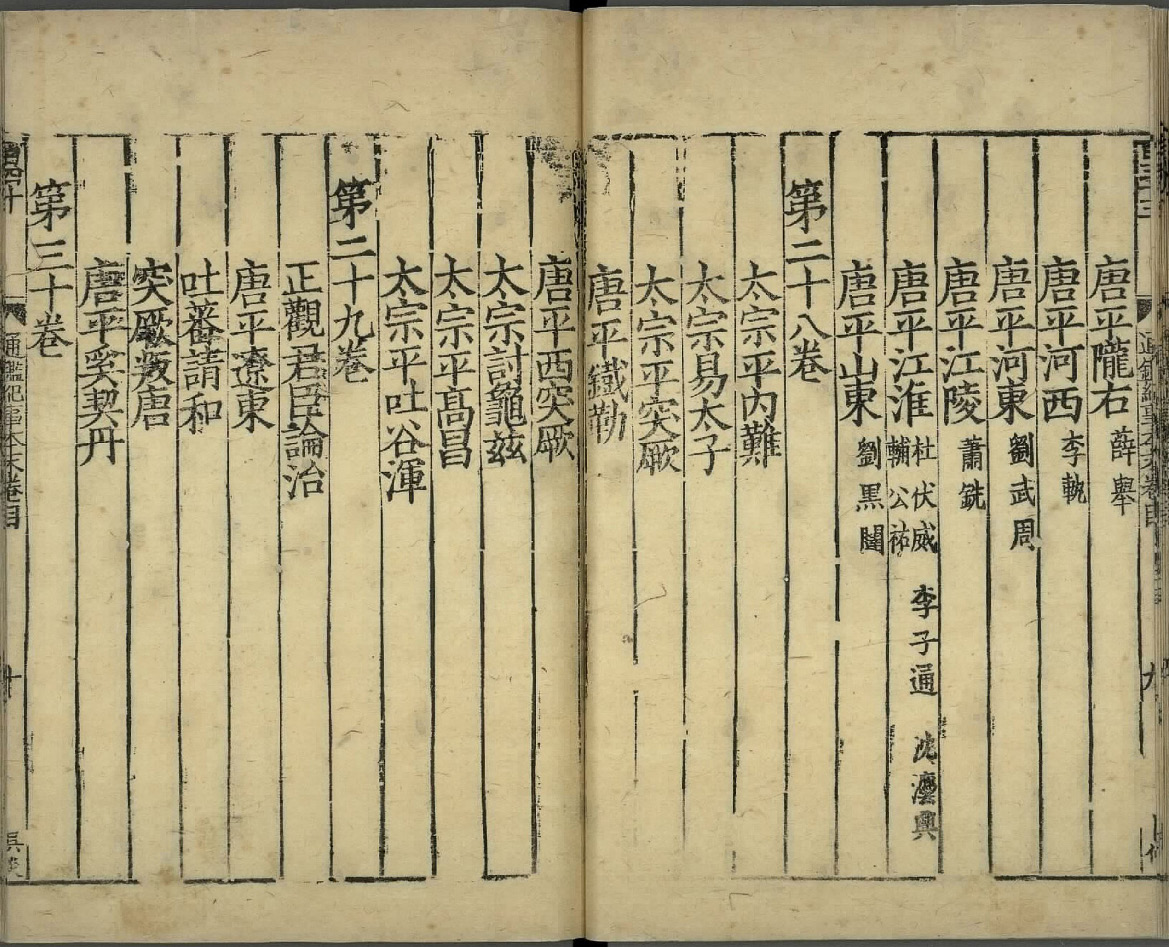 唐平隴右 薛舉
唐平河西 李軌
唐平河東 劉武周
唐平江陵 蕭銑
唐平江淮 杜伏威 輔公祏 李子通 沈灋興
唐平山東 劉黑闥
第二十八卷
太宗平内難
太宗易太子
太宗平突厥
唐平鐵勒
唐平西突厥
太宗討龜兹
太宗平髙昌
太宗平吐谷渾
第二十九卷
正觀君臣論治
唐平遼東
吐蕃請和
突厥叛唐
唐平奚契丹
第三十卷
通鑑紀事本末卷目
十